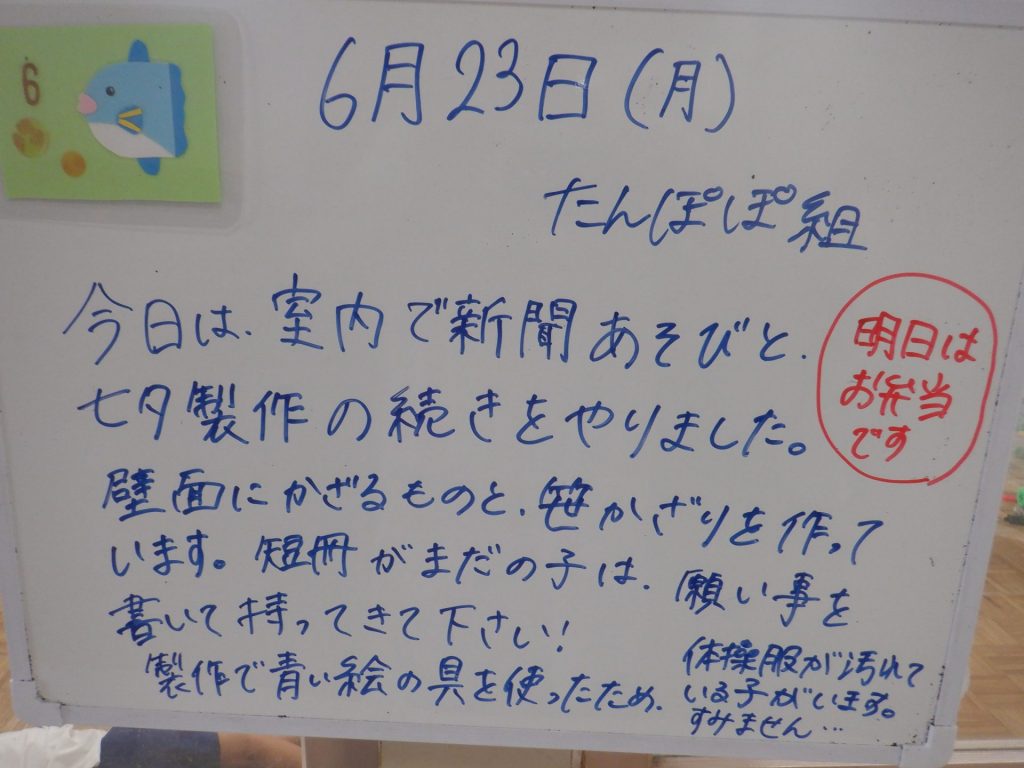 6
6月23日(月)
たんぽぽ組
今日は、室内で新聞あそびと、
七夕製作の続きをやりました。
明日は
お弁当
です
壁面にかざるものと、笹かざりを作って
います。短冊がまだの子は、願い事を
書いて持ってきて下さい!
製作で青い絵の具を使ったため、
体操服が汚れて
いる子がいます。
すみません…